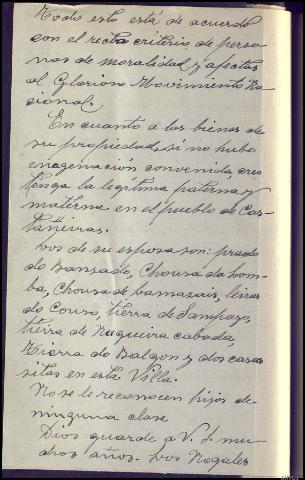 Todo esto está de acuerdo
con el recto criterio de perso-
nas de moralidad y afectas
al Glorioso Movimiento Na-
cional.
En cuanto a los bienes de
su propiedad, si no hubo
enagenación convenida, cres
tenga la legítima paterna y
materna en el pueblo de Cas-
tañeiras.
Los de su esposa son: prado
do Banzado, Chousa da Lom-
ba, Chousa de Lamazais, leiras
do Couso, tierra de Sampayo,
tierra de Nugueira cabada,
Tierra do Balgon y dos casas
sitas en esta Villa.
No se le reconocen hijos de
ninguna clase
Dios guarde a V. S. mu-
chos años. Los Nogales